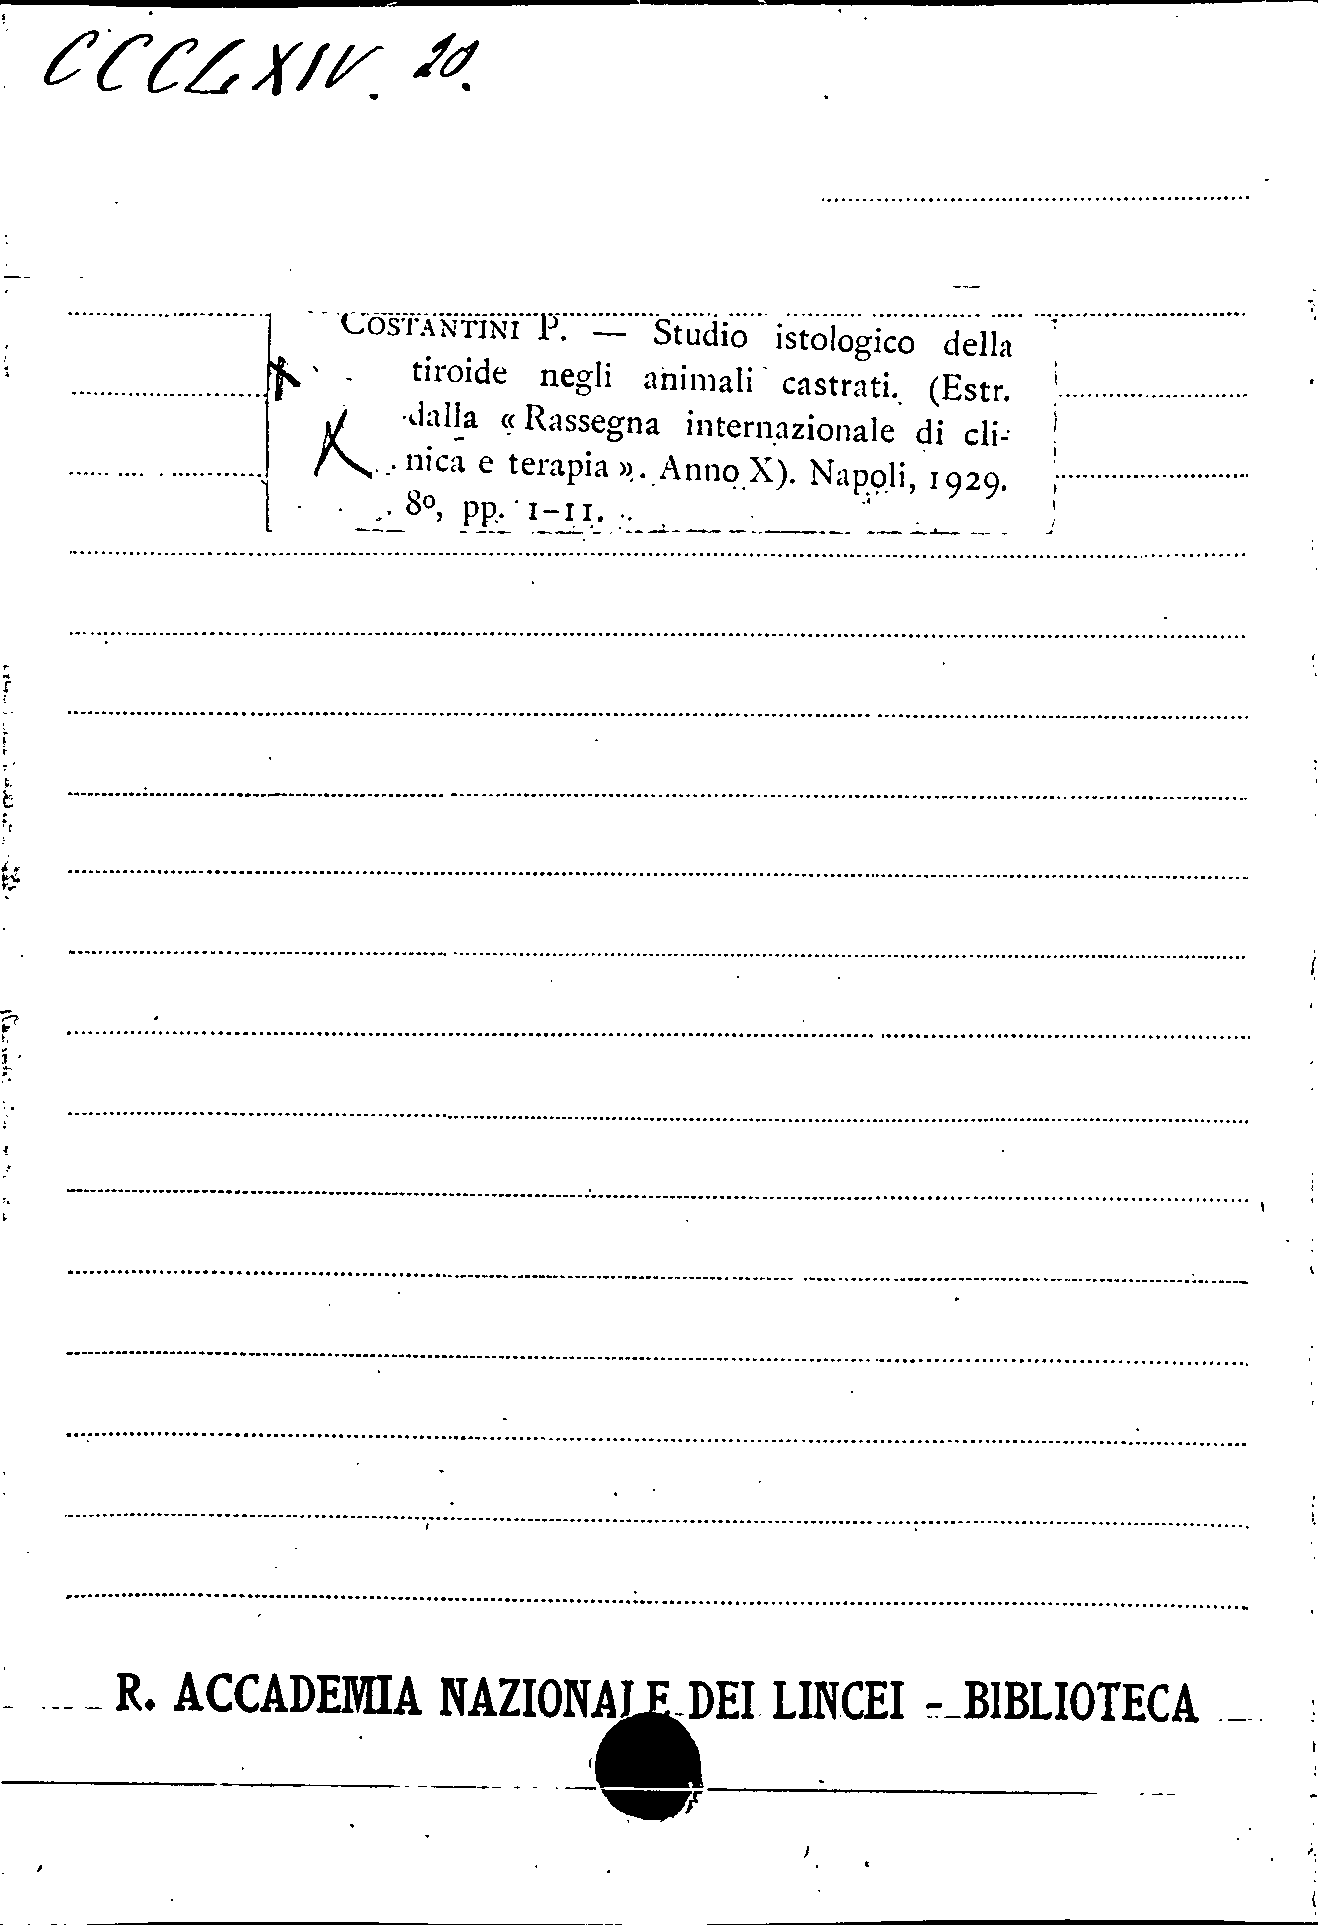 CCCLXIV. 20.
COSTANTINI P. — Studio istologico della
tiroide negli animali castrati. (Estr.
dalla « Rassegna internazionale di cli-
nica e terapia ». Anno X). Napoli, 1929.
8º, pp. 1-11.
R. ACCADEMIA NAZIONALE DEI LINCEI - BIBLIOTECA